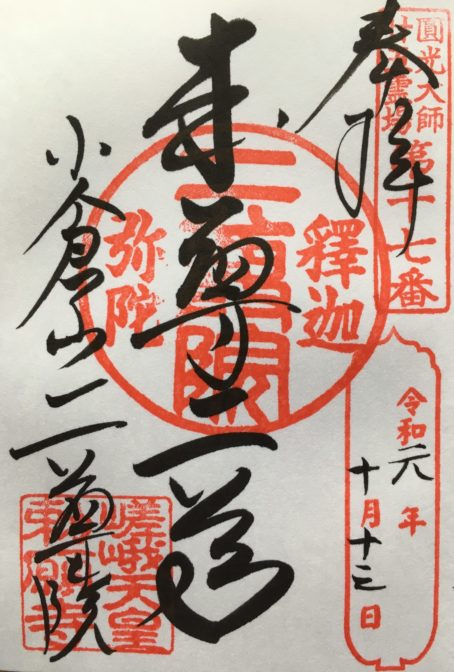 圓光大師
霊場
第十七番
奉拝
令和元年
十月十三日
釋迦
二尊院
弥陀
本尊二尊
小倉山二尊院
嵯峨天皇
勅願寺